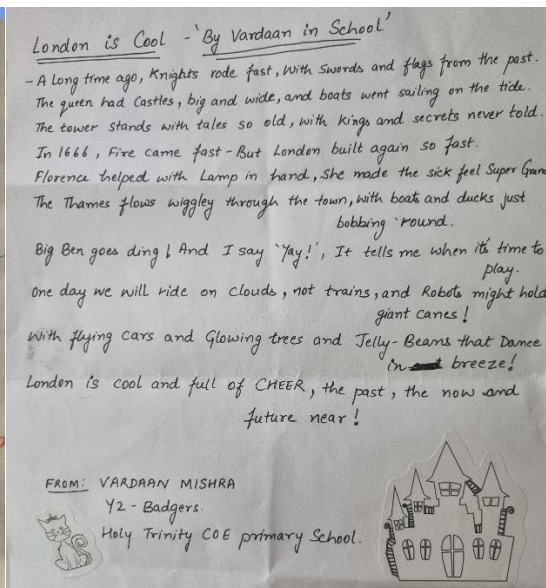 London is Cool - 'By Vardaan in School'
- A long time ago, Knights rode fast, With Swords and flags from the past.
The queen had Castles, big and wide, and boats went sailing on the tide.
The tower stands with tales so old, with Kings and secrets never told.
In 1666, Fire came fast - But London built again so fast.
Florence helped with Lamp in hand, She made the sick feel Super Gran
The Thames flows wiggley through the town, with boats and ducks just
bobbing 'round.
Big Ben goes ding! And I say 'Yay!', It tells me when it's time to
play.
One day we will ride on Clouds, not trains, and Robots might hold
giant canes!
With flying cars and Glowing trees and Jelly-Beans that Dance
in breeze!
London is cool and full of CHEER, the past, the now and
future near!
FROM: VARDAAN MISHRA
Y2 - Badgers.
Holy Trinity COE primary School.